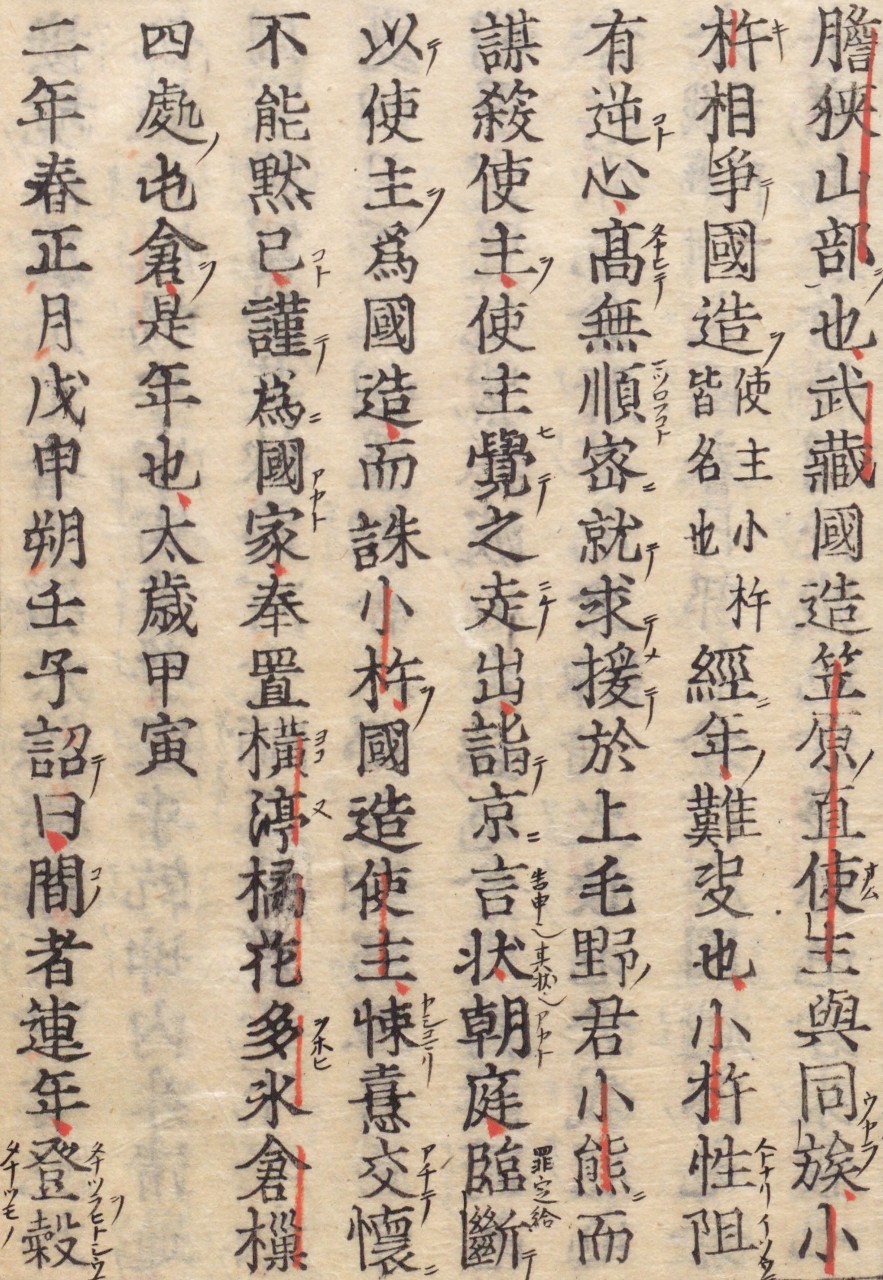 膽狹山部也武藏國造笠原直使主與同族小
杵相爭國造使主小杵皆名也經年難㕜也小杵性阻
有逆心髙無順宻就求援於上毛野君小熊而
謀殺使主使主覺之走出詣京言状朝庭臨斷
以使主爲國造而誅小杵國造使主悚憙交懷
不能黙已謹爲國家奉置橫渟橘花多氷倉樔
四處屯倉是年也太歲甲寅
二年春正月戊申朔壬子詔曰間者連年登穀